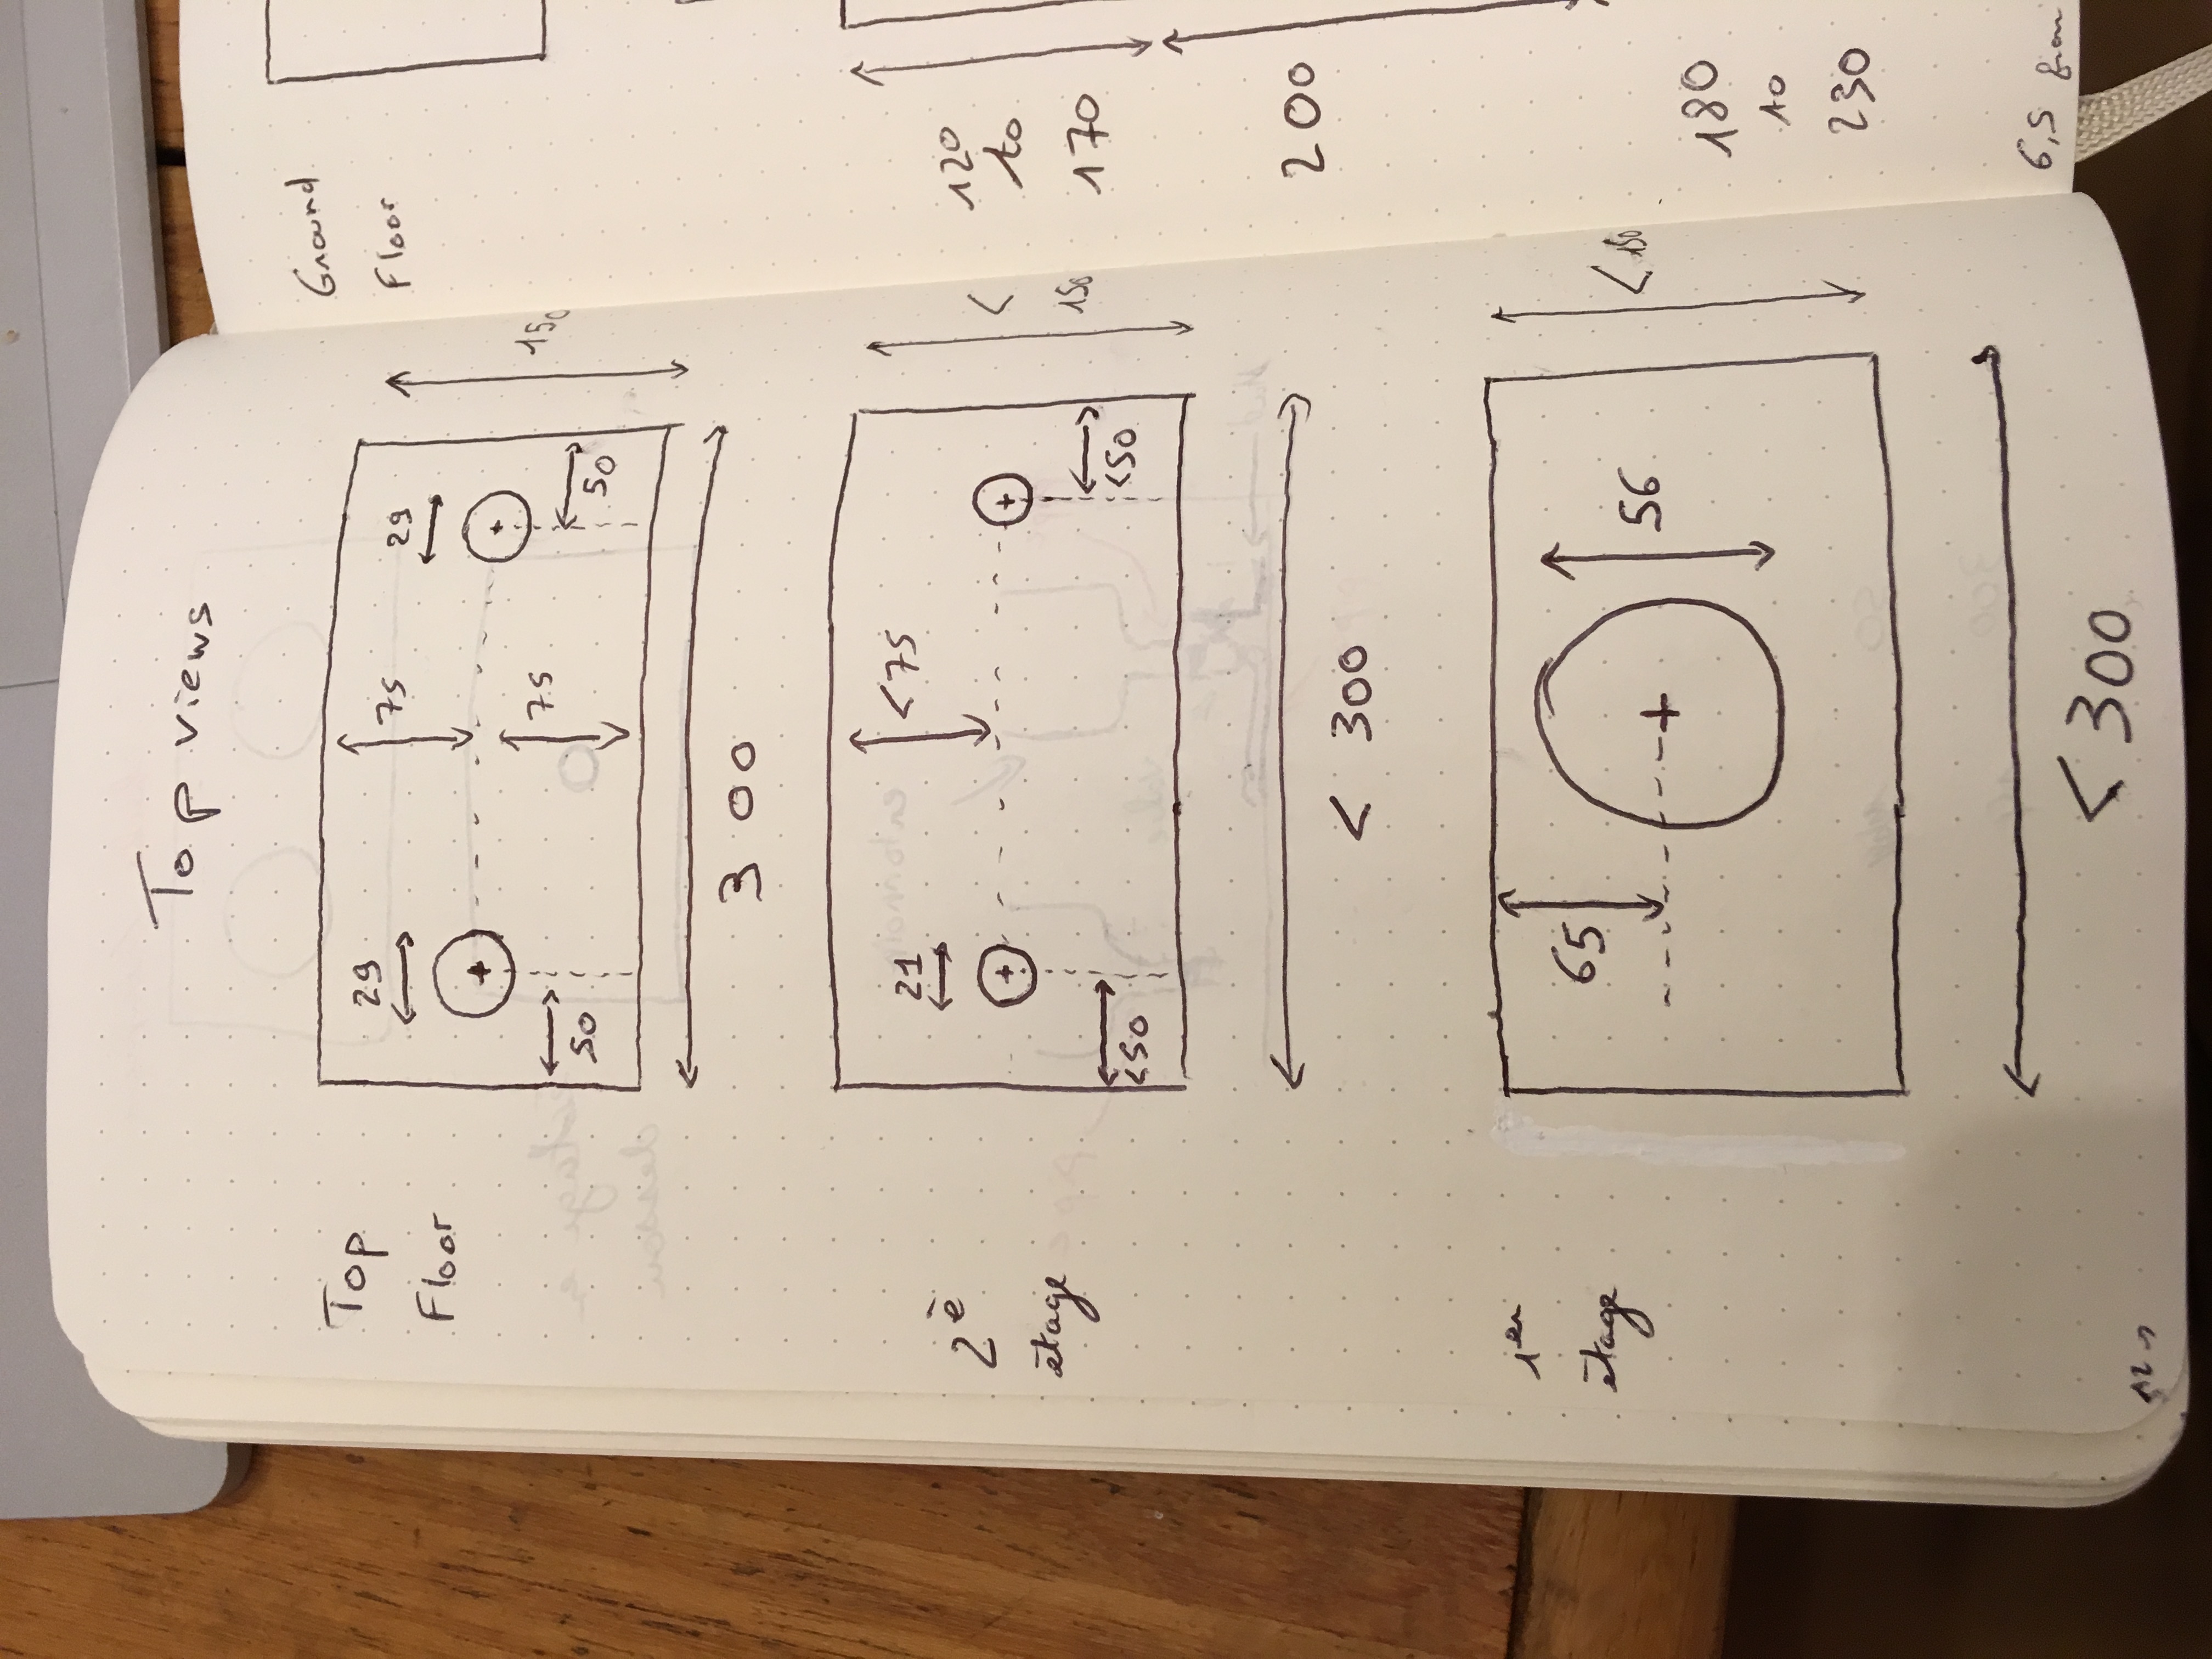 Top views
Top
Floor
29
75
29
75
50
50
150
300
2è
étage
21
<75
<50
<50
<
150
< 300
1er
étage
65
56
< 150
<300
Ground
Floor
120
to
170
200
180
to
230
6,5 from